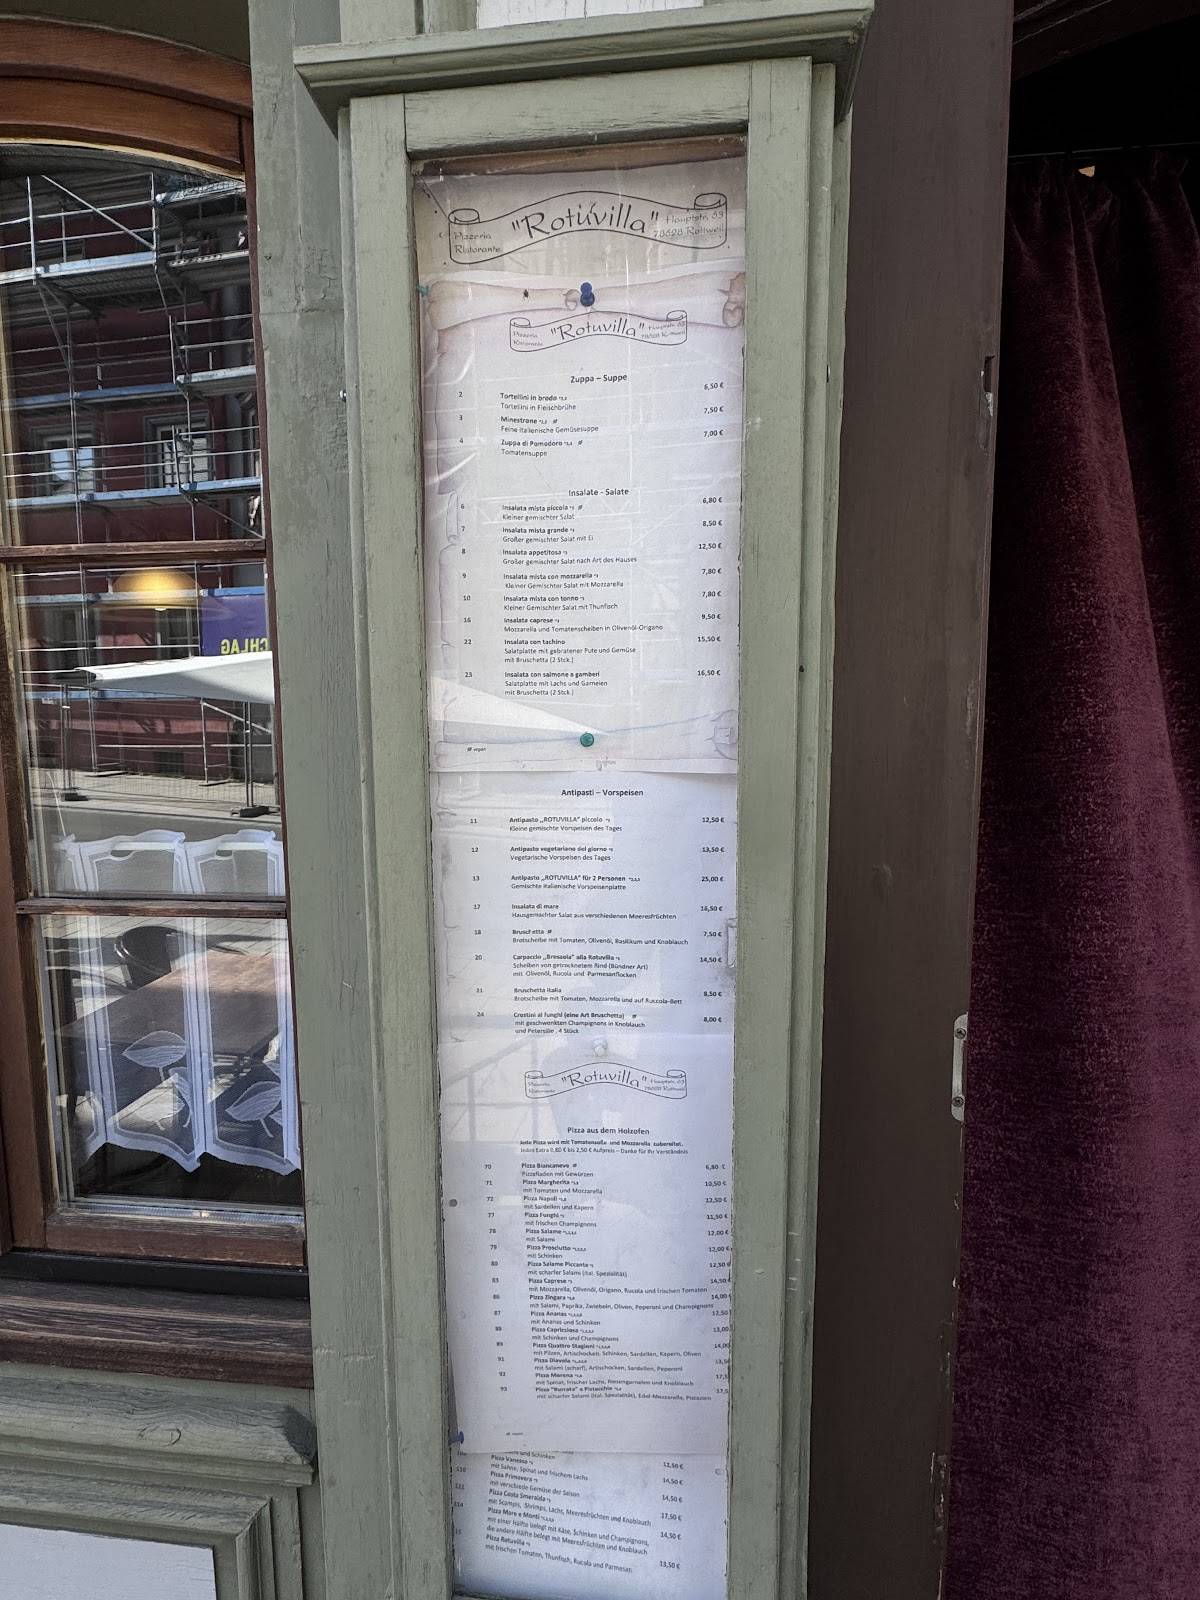 "Rotuvilla"
Pizzeria
Ristorante
Hauptstr. 63
78628 Rottweil
"Rotuvilla"
Pizzeria
Ristorante
Zuppa – Suppe
2 Tortellini in brodo 6,50 €
Tortellini in Fleischbrühe
3 Minestrone 7,50 €
Feine italienische Gemüsesuppe
4 Zuppa di Pomodoro 7,00 €
Tomatensuppe
Insalate - Salate
6 Insalata mista piccola 6,80 €
Kleiner gemischter Salat
7 Insalata mista grande 8,50 €
Großer gemischter Salat mit Ei
8 Insalata appetitosa 12,50 €
Großer gemischter Salat nach Art des Hauses
9 Insalata mista con mozzarella 7,80 €
Kleiner Gemischter Salat mit Mozzarella
10 Insalata mista con tonno 7,80 €
Kleiner Gemischter Salat mit Thunfisch
16 Insalata caprese 9,50 €
Mozzarella und Tomatenscheiben in Olivenöl-Origano
22 Insalata con tachino 15,50 €
Salatplatte mit gebratener Pute und Gemüse
mit Bruschetta (2 Stck.)
23 Insalata con salmone a gamberi 16,50 €
Salatplatte mit Lachs und Garnelen
mit Bruschetta (2 Stck.)
vegan
Antipasti – Vorspeisen
11 Antipasto „ROTUVILLA" piccolo 12,50 €
Kleine gemischte Vorspeisen des Tages
12 Antipasto vegetariano del giorno 13,50 €
Vegetarische Vorspeisen des Tages
13 Antipasto „ROTUVILLA" für 2 Personen 25,00 €
Gemischte italienische Vorspeisenplatte
17 Insalata di mare 16,50 €
Hausgemachter Salat aus verschiedenen Meeresfrüchten
18 Bruschetta 7,50 €
Brotscheibe mit Tomaten, Olivenöl, Basilikum und Knoblauch
20 Carpaccio „Bresaola" alla Rotuvilla 14,50 €
Scheiben von getrocknetem Rind (Bündner Art)
mit Olivenöl, Rucola und Parmesanflocken
21 Bruschetta Italia 8,50 €
Brotscheibe mit Tomaten, Mozzarella und auf Ruccola-Bett
24 Crostini ai funghi (eine Art Bruschetta) 8,00 €
mit geschwenkten Champignons in Knoblauch
und Petersilie , 4 Stück
"Rotuvilla"
Pizzeria
Ristorante
Pizza aus dem Holzofen
Jede Pizza wird mit Tomatensoße und Mozzarella zubereitet.
Jedes Extra 0,60 € bis 2,50 € Aufpreis – Danke für Ihr Verständnis
70 Pizza Biancaneve 6,80 €
Pizzafladen mit Gewürzen
71 Pizza Margherita 10,50 €
mit Tomaten und Mozzarella
72 Pizza Napoli 12,50 €
mit Sardellen und Kapern
77 Pizza Funghi 11,50 €
mit frischen Champignons
78 Pizza Salame 12,00 €
mit Salami
79 Pizza Prosciutto 12,00 €
mit Schinken
80 Pizza Salame Piccante 12,50 €
mit scharfer Salami (ital. Spezialität)
83 Pizza Caprese 14,50
mit Mozzarella, Olivenöl, Origano, Rucola und frischen Tomaten
86 Pizza Zingara 14,00
mit Salami, Paprika, Zwiebeln, Oliven, Peperoni und Champignons
87 Pizza Ananas 12,50
mit Ananas und Schinken
88 Pizza Capricciosa 13,00
mit Schinken und Champignons
89 Pizza Quattro Stagioni 14,00
mit Pilzen, Artischocken, Schinken, Sardellen, Kapern, Oliven
91 Pizza Diavola 13,5
mit Salami (scharf), Artischocken, Sardellen, Peperoni
92 Pizza Morena 17,5
mit Spinat, frischer Lachs, Riesengarnelen und Knoblauch
93 Pizza "Burrata" e Pistacchio 17,5
mit scharfer Salami (ital. Spezialität), Edel-Mozzarella, Pistazien
und Schinken
Pizza Vanessa 12,50 €
mit Sahne, Spinat und frischem Lachs
110 Pizza Primavera 14,50 €
mit verschiede Gemüse der Saison
Pizza Costa Smeralda 14,50 €
mit Scampis, Shrimps, Lachs, Meeresfrüchten und Knoblauch 17,50 €
114 Pizza Mare e Monti 14,50 €
mit einer Hälfte belegt mit Käse, Schinken und Champignons,
die andere Hälfte belegt mit Meeresfrüchten und Knoblauch
Pizza Rotuvilla 13,50 €
mit frischen Tomaten, Thunfisch, Rucola und Parmesan